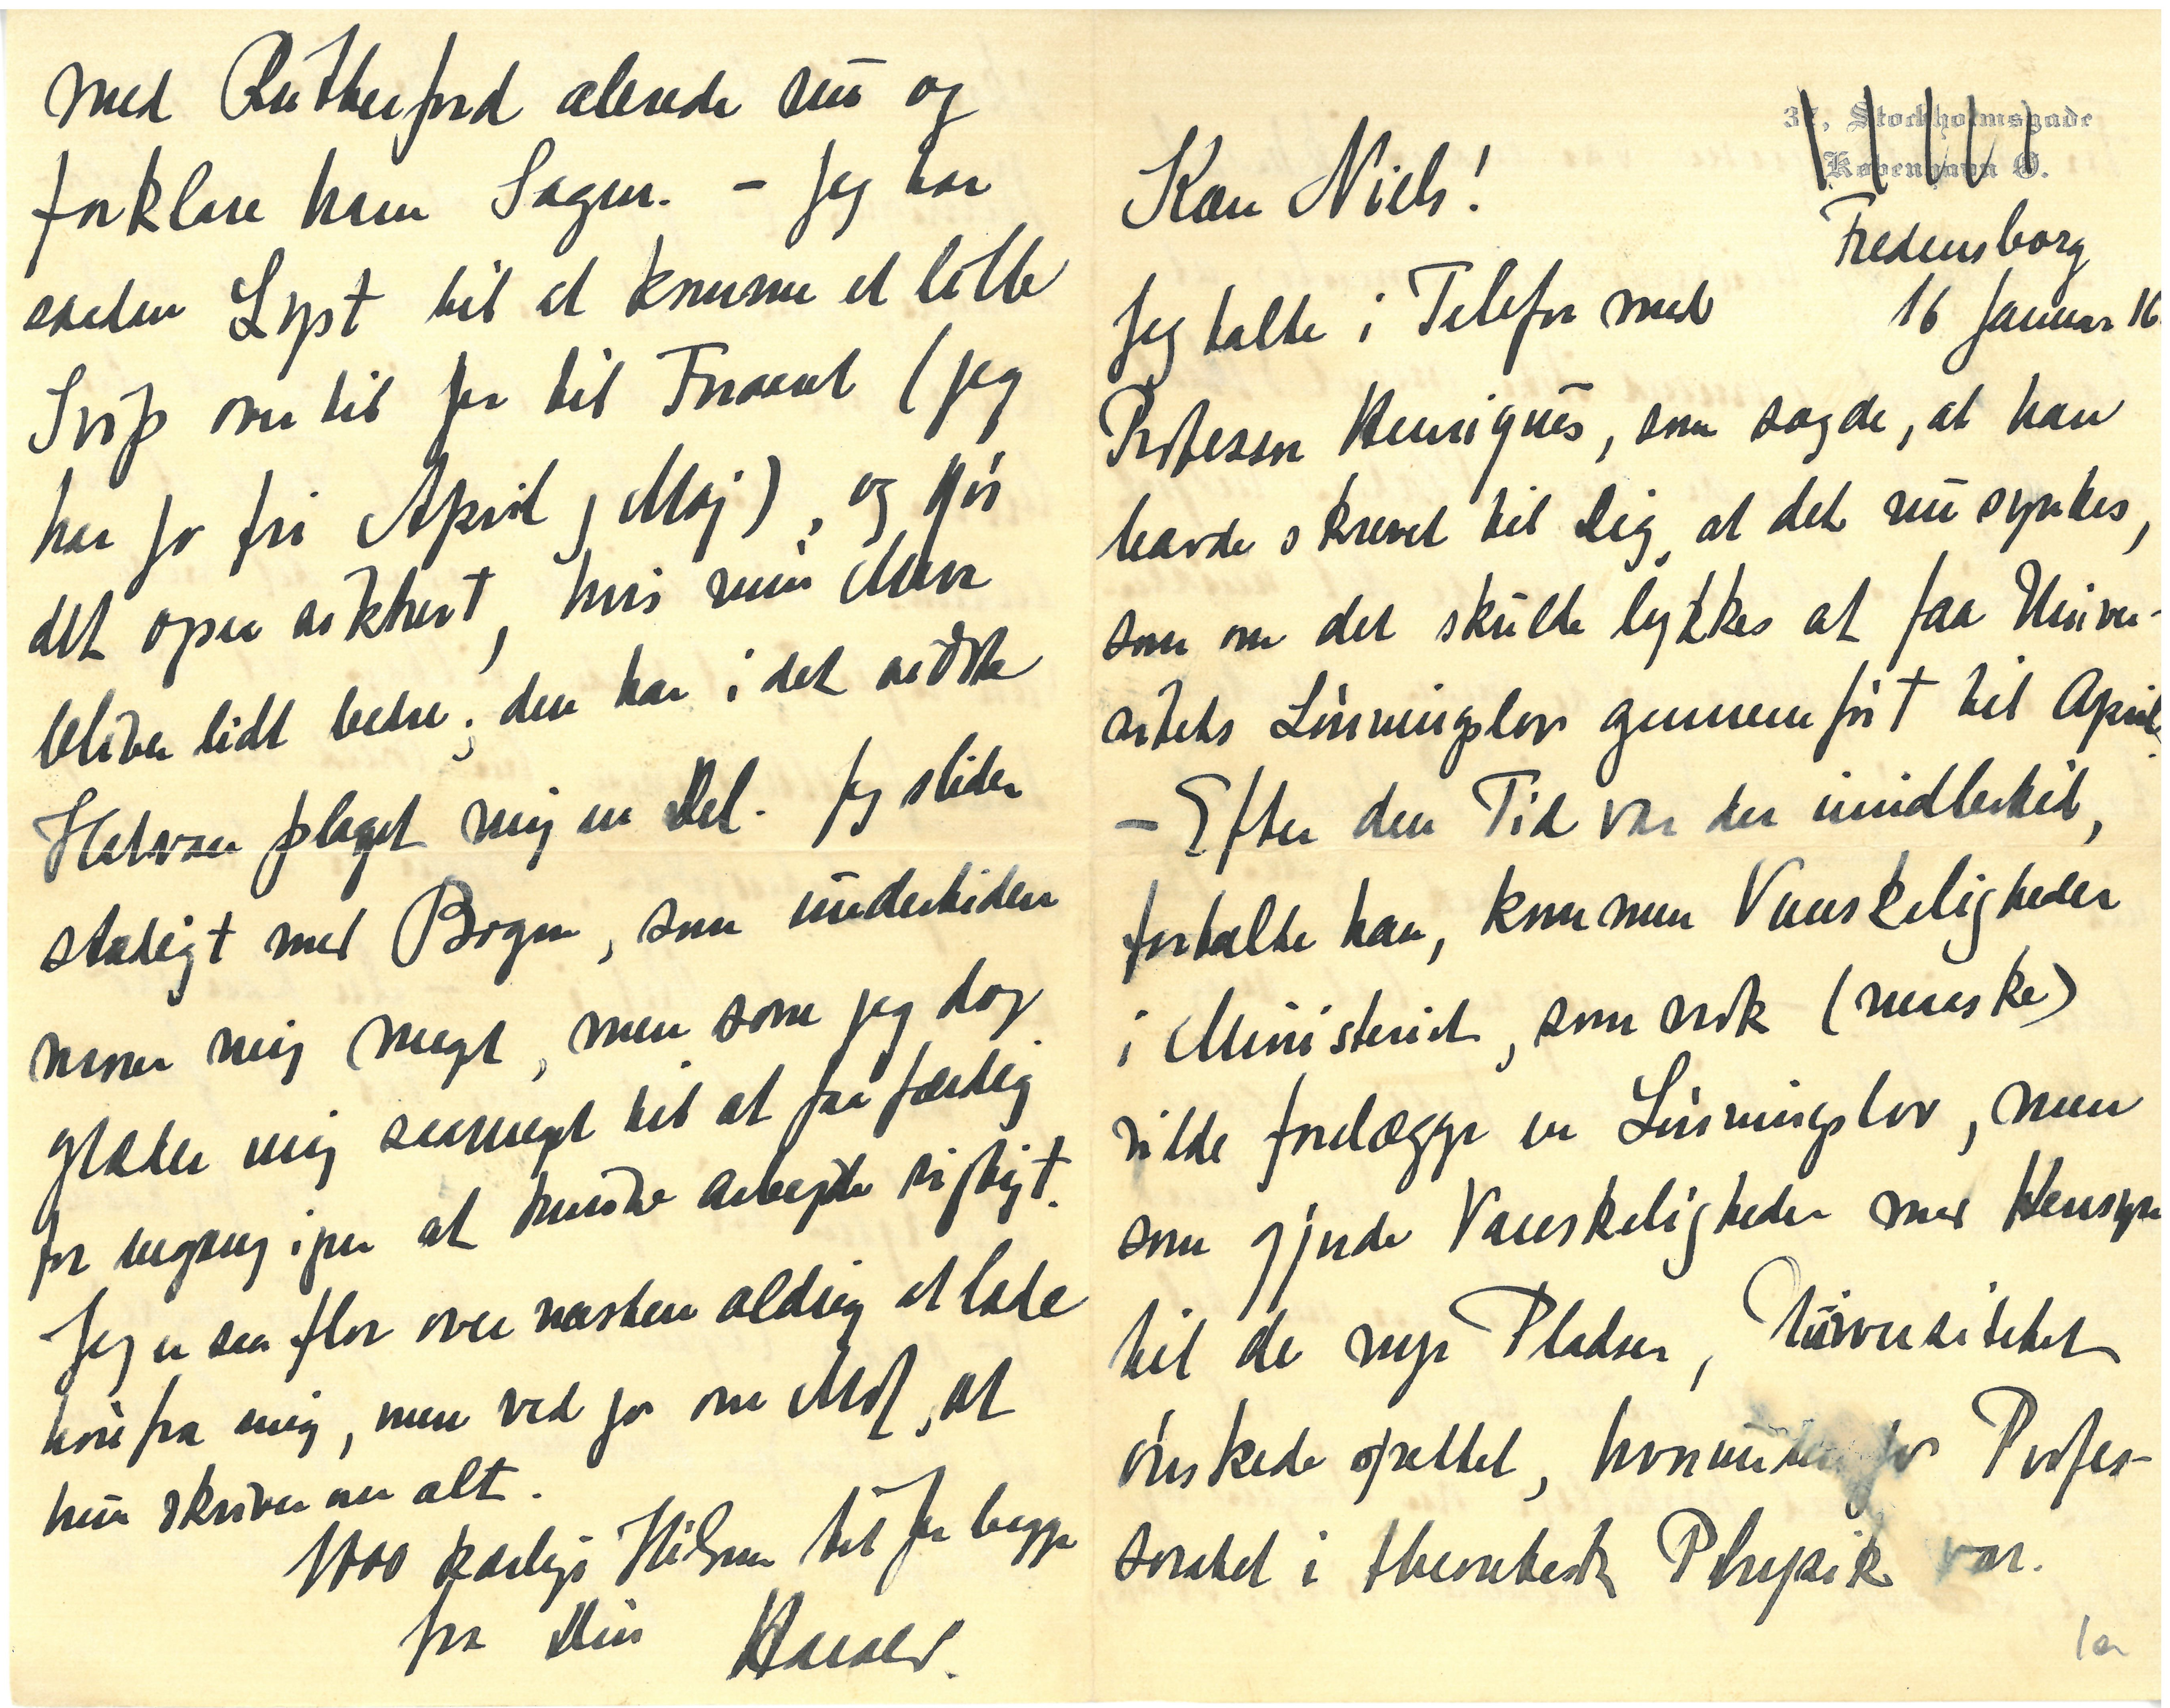 37, Stockholmsgade
København Ø.
Fredensborg
16 Januar 16.
Kære Niels!
Jeg talte i Telefon med
Professor Henriques, som sagde, at han
havde skrevet til Dig, at det nu syntes,
som om det skulde lykkes at faa Univer-
sitets Lønningslov gennemført til April.
– Efter den Tid var der imidlertid,
fortalte han, kommen Vanskeligheder
i Ministeriet, som nok (maaske)
vilde forelægge en Lønningslov, men
som gjorde Vanskeligheder med Hensyn
til de nye Pladser, Universitetet
ønskede oprettet, hvorunder jo Profes-
soratet i theoretisk Physik var.
1a
med Rutherford allerede nu og
forklare ham Sagen. – Jeg har
saadan Lyst til at komme et lille
Svip over til Jer til Foraaret (jeg
har jo fri April, Maj), og gør
det ogsaa sikkert, hvis min Mave
bliver lidt bedre; den har i det sidste
Halvaar plaget mig en Del. Jeg slider
stadigt med Bogen, som undertiden
morer mig meget, men som jeg dog
glæder mig saameget til at faa færdig
for engang igen at kunde arbejde rigtigt.
Jeg er saa flov over næsten aldrig at lade
høre fra mig, men ved jo om Mor, at
hun skriver om alt.
1000 kærlige Hilsner til Jer begge
fra Din Harald.